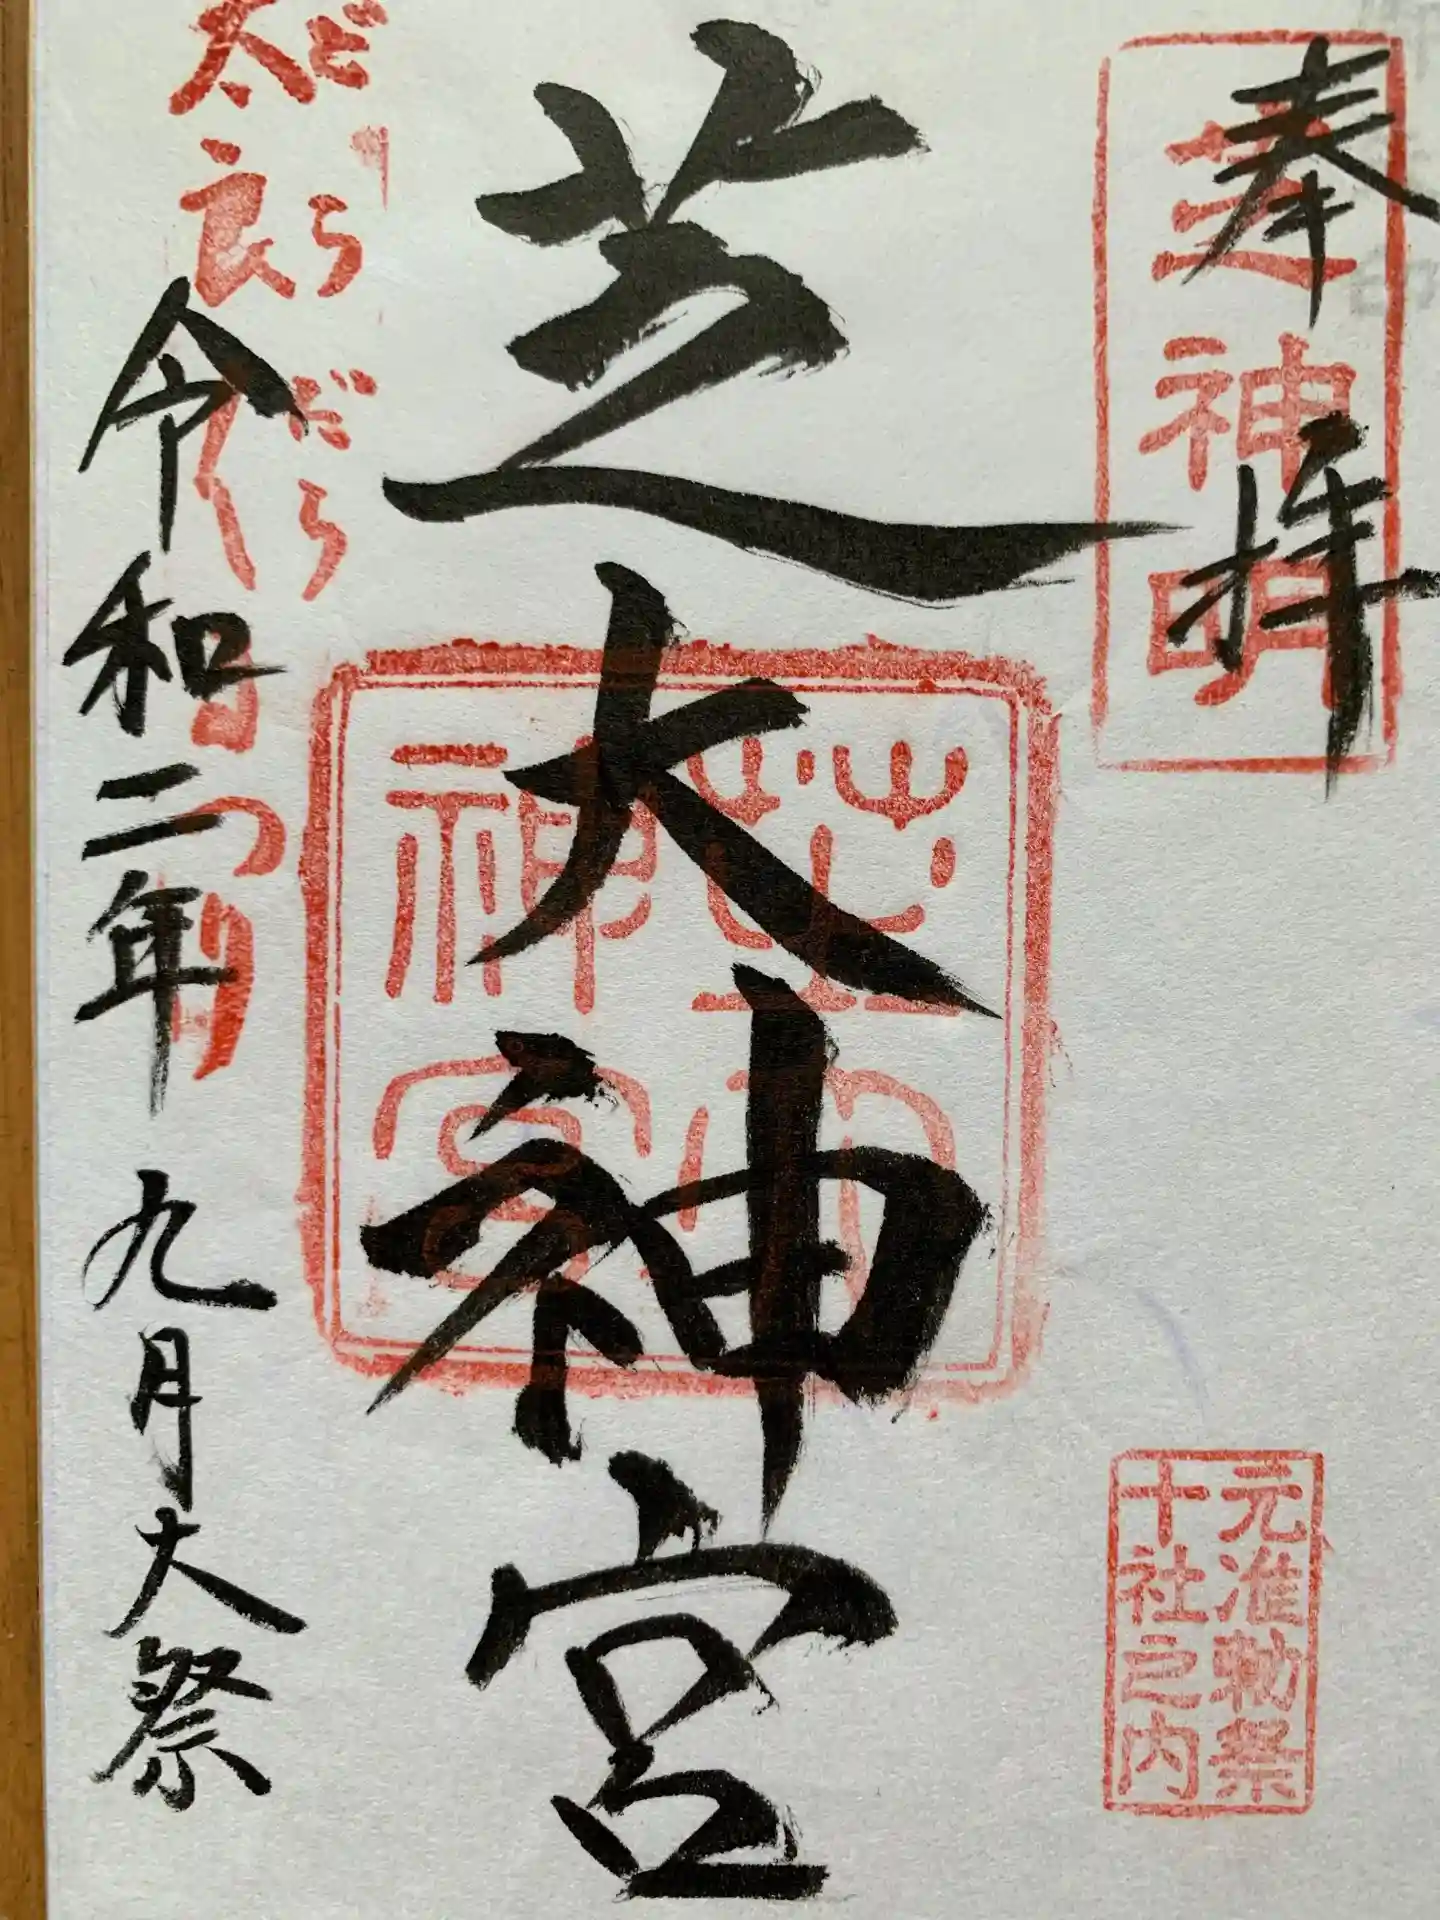 奉拝
芝神明
元准勅祭
十社之内
芝大神宮
芝大
神宮
だらだら
太良〱まつり
令和二年 九月大祭